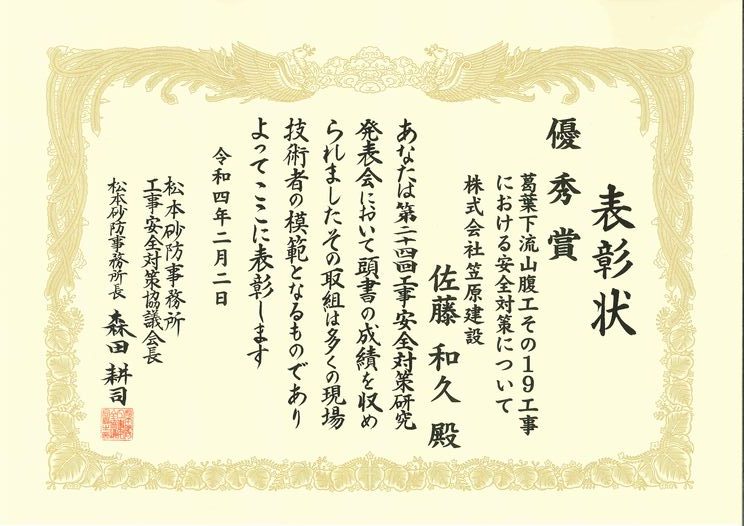 表彰状
優秀賞
葛葉下流山腹工その19工事
における安全対策について
株式会社笠原建設
佐藤和久殿
あなたは第二十四回工事安全対策研究
発表会において頭書の成績を収め
られましたその取組は多くの現場
技術者の模範となるものであり
よってここに表彰します
令和四年二月二日
松本砂防事務所
工事安全対策協議会長
松本砂防事務所長 森田耕司